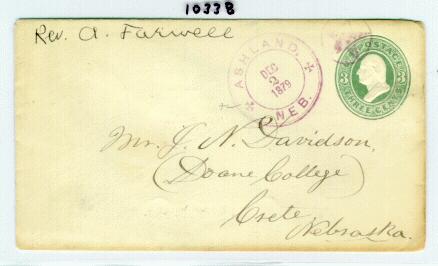 10338
Rev. A. Farwell
ASHLAND,
DEC
2
1879
NEB.
U.S. POSTAGE
3 3
THREE CENTS
Mr. J. N. Davidson,
(Doane College)
Crete,
Nebraska.